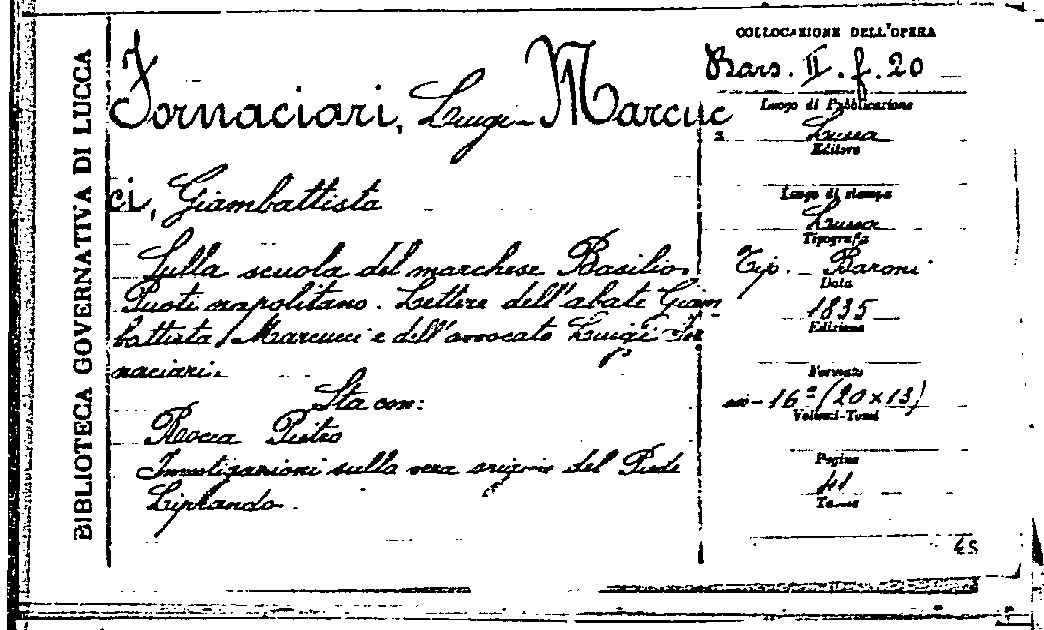 BIBLIOTECA GOVERNATIVA DI LUCCA
Fornaciari, Luigi - Marcuc
ci, Giambattista
Sulla scuola del marchese Basilio
Puoti napolitano. Lettere dell'abate Giam
battista Marcucci e dell'avvocato Luigi For
naciari.
Sta con:
Rocca Pietro
Investigazioni sulla vera origine del Piede
Liprando.
COLLOCAZIONE DELL'OPERA
Bars. II. f. 20
Luogo di Pubblicazione
Lucca
Editore
Luogo di stampa
Lucca
Tipografia
Tip. Baroni
Data
1835
Edizione
Formato
in-16º (20x13)
Volumi-Tomi
Pagine
41